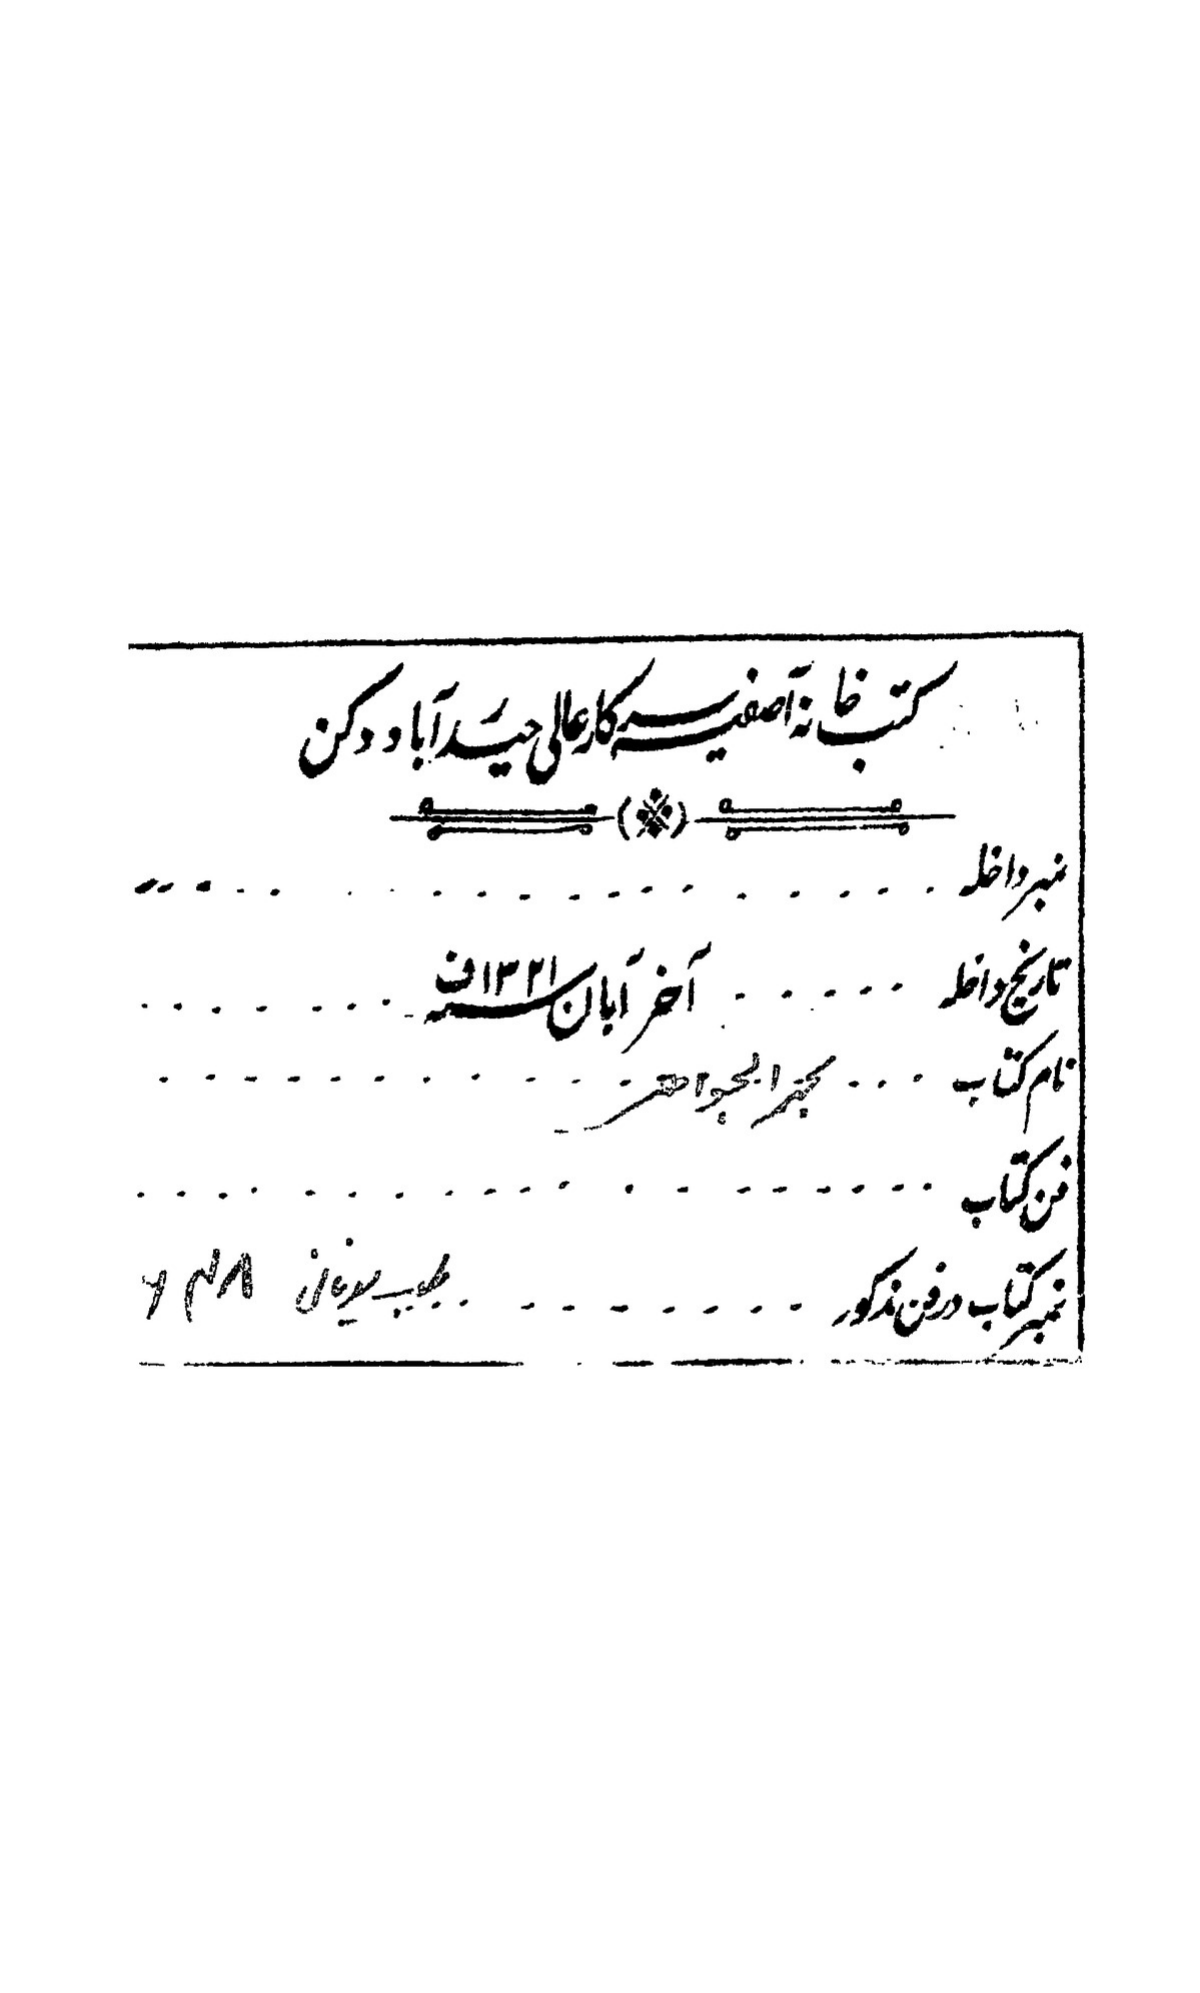 کتب خانہ آصفیہ سرکار عالی حیدرآباد دکن
نمبر داخلہ
تاریخ داخلہ آخر آبان سنہ ۱۳۲۱ف
نام کتاب بحر الجواهر
فن کتاب
نمبر کتاب در فن مذکور طب یونانی ۶۴۸